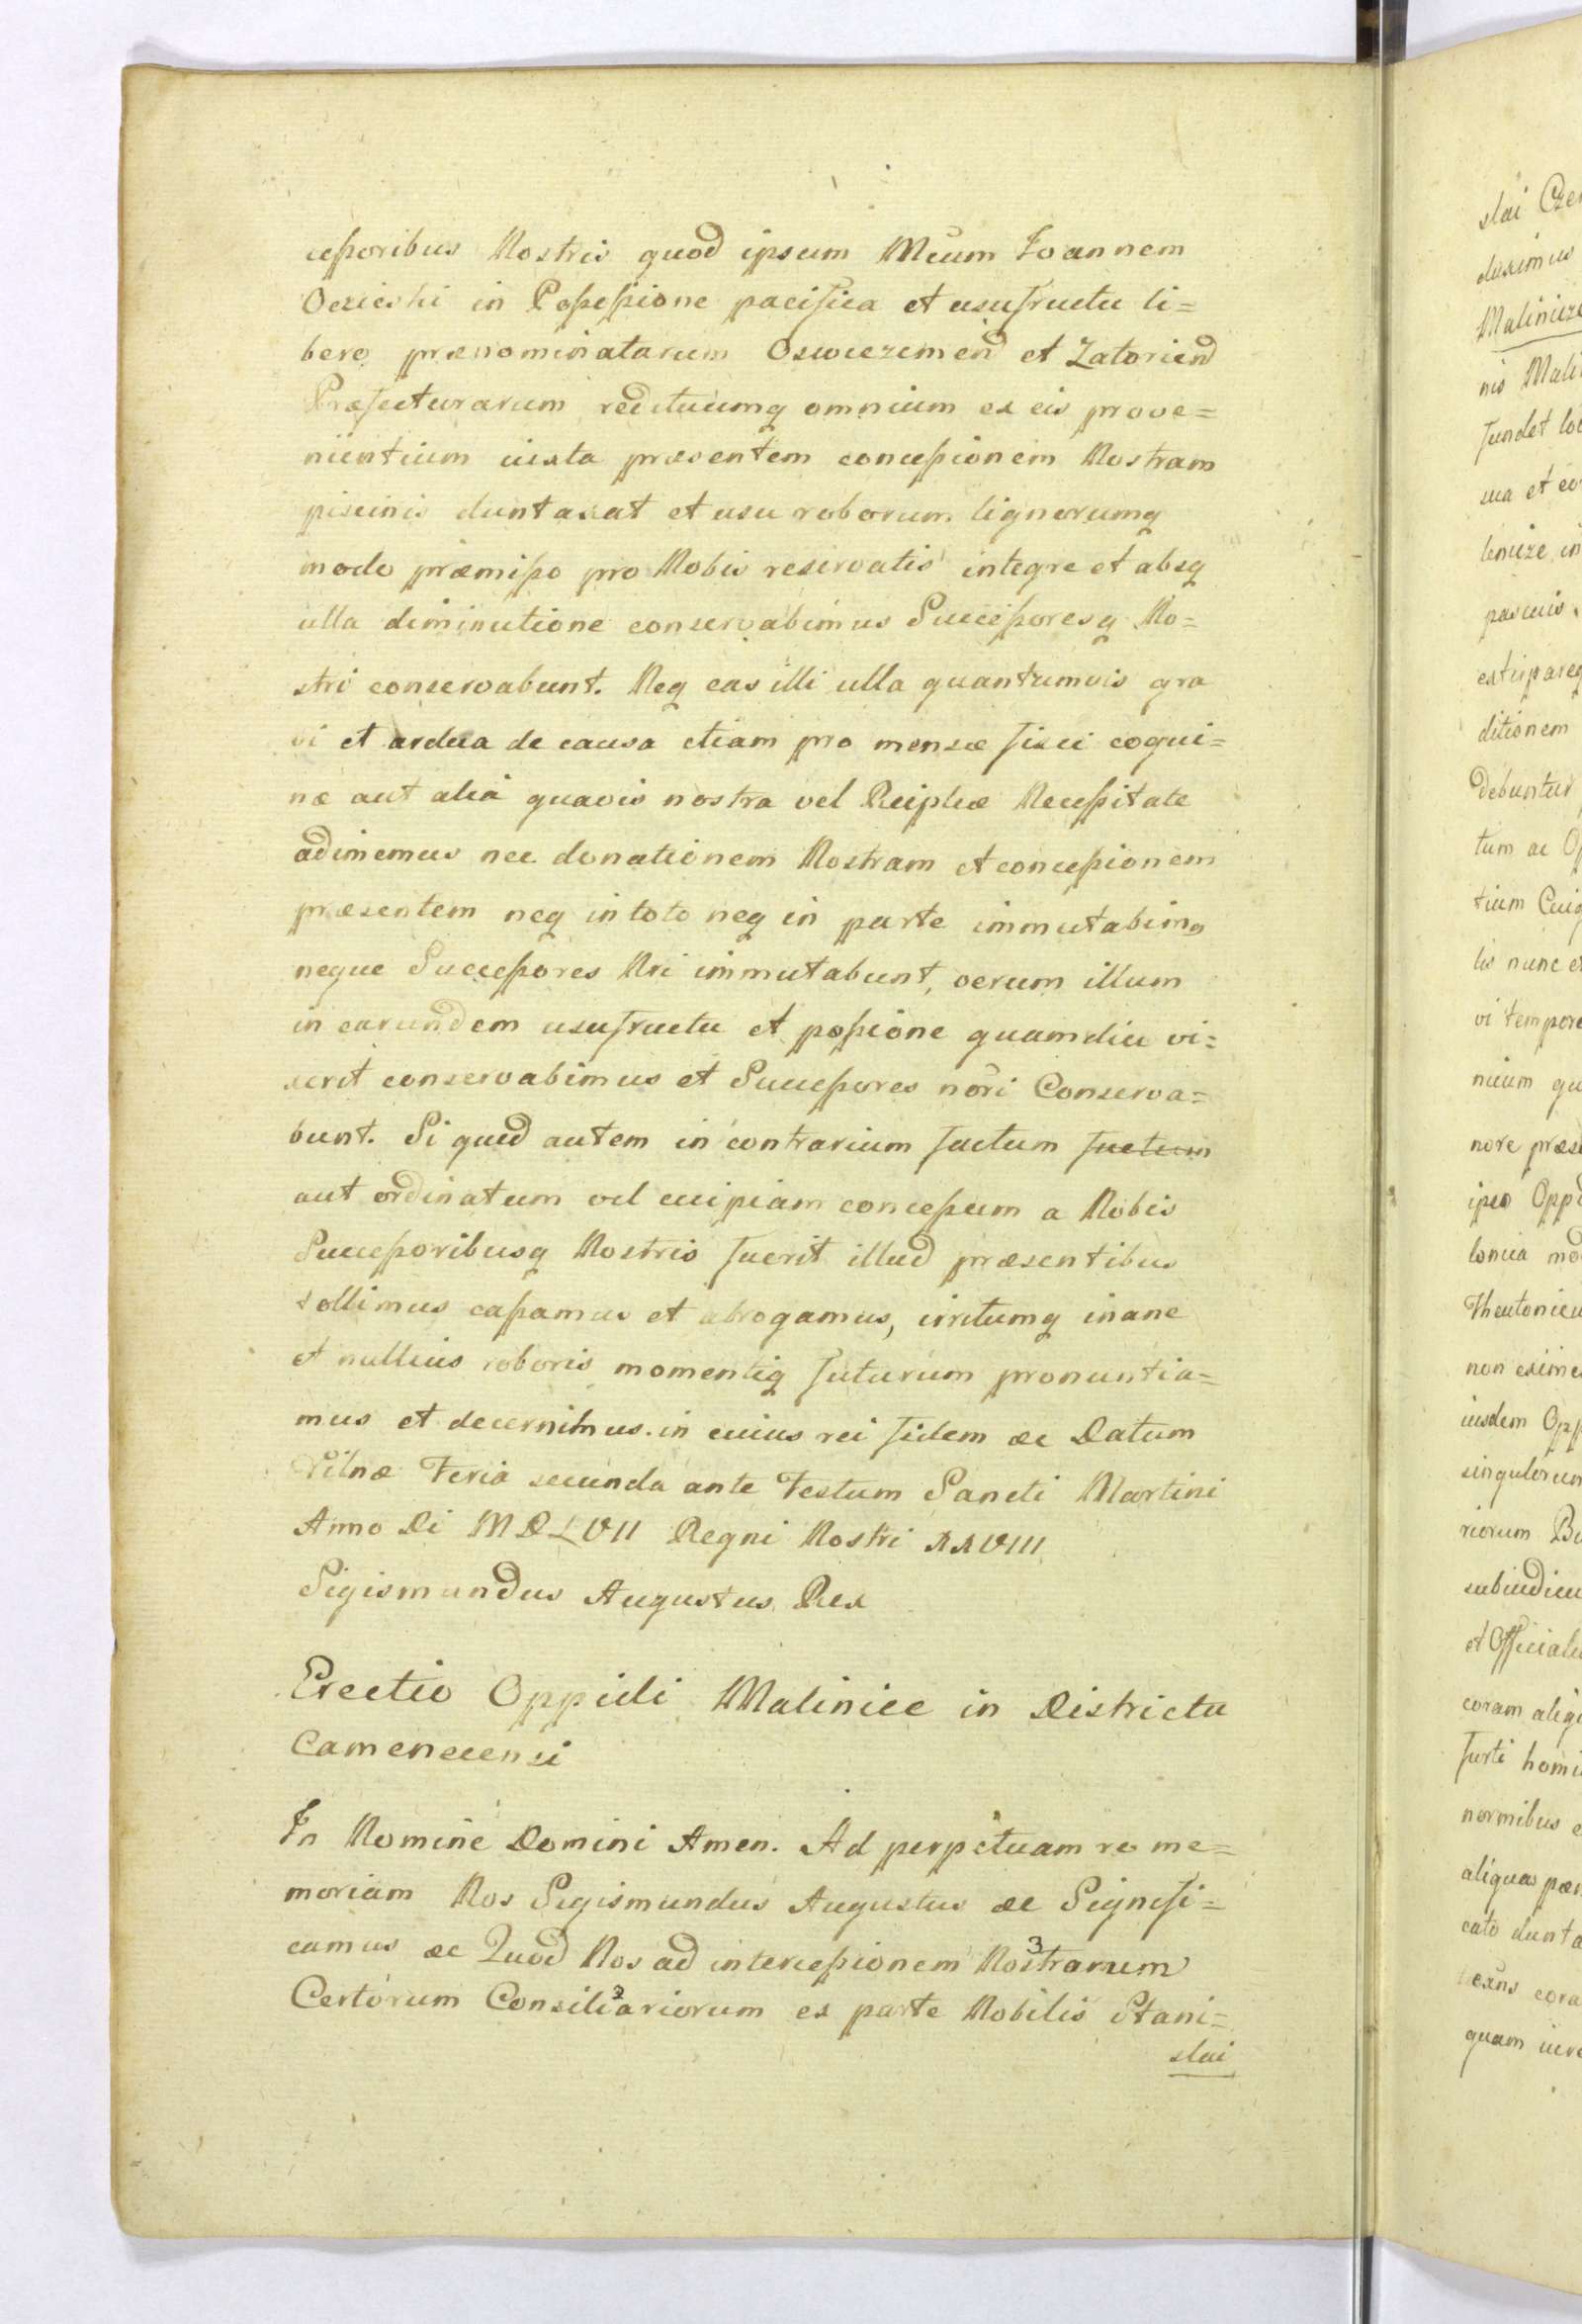 ceßoribus Nostris quod ipsum Mcum Joannem
Oczieski in Poßeßione pacifica et usufructu li=
bero prænominatarum Oswieczimen̄d et Zatoriend
Præfecturarum redituumq omnium ex eis prove=
nientium iuxta præsentem conceßionem Nostram
piscinis duntaxat et usu roborum lignorumq
modo præmißo pro Nobis reservatis integre et absq
ulla diminutione conservabimus Succeßoresq No=
stri conservabunt. Neq eas illi ulla quantumvis gra
vi et ardua de causa etiam pro mensæ fisci coqui=
næ aut alia quavis nostra vel Reiplcæ Neceßitate
adimemus nec donationem Nostram et conceßionem
præsentem neq in toto neq in parte immutabimq
neque Succeßores Nri immutabunt, verum illum
in earundem usufructu et poßione quamdiu vi=
xerit conservabimus et Succeßores nōri Conserva=
bunt. Si quid autem in contrarium factum factum
aut ordinatum vel cuipiam conceßum a Nobis
Succeßoribusq Nostris fuerit illud præsentibus
tollimus caßamus et abrogamus, irritumq inane
et nullius roboris momentiq futurum pronuntia=
mus et decernimus. in cuius rei fidem æc Datum
Vilnæ Feria secunda ante Festum Sancti Martini
Anno Di MDLVII Regni Nostri XXVIII
Sigismundus Augustus Rex
Erectio Oppidi Malinice in Districtu
Camenecensi
In Nomine Domini Amen. Ad perpetuam re me=
moriam Nos Sigismundus Augustus æc Signifi=
camus æc Quod Nos ad interceßionem Nostrarum 3
Certorum Consiliariorum 2 ex parte Nobilis Stani=
slai
slai Czer
duximus
Malinicze
nis Mali
fundet loc
sua et eo
linicze in
pascuis
extirpareq
ditionem
debuntur
tum ac Op
tium Cuiq
lis nunc e
vi tempore
nium qu
nore præse
ipso Oppi
lonica mo
Theutonicu
non exime
iusdem Opp
singulorum
riorum Bu
subiudicu
et Officiale
coram aliqu
furti homi
normibus e
aliquas pœn
cato dunta
cora
quam iure